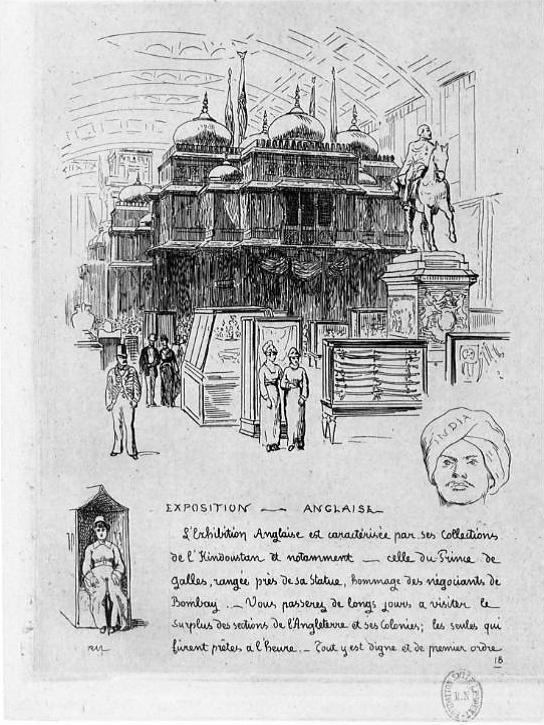 INDIA
EXPOSITION — ANGLAISE
L'Exhibition Anglaise est caractérisée par ses Collections
de l'Hindoustan et notamment — celle du Prince de
galles, rangée près de sa Statue, hommage des négociants de
Bombay. — Vous passerez de longs jours a visiter le
Surplus des sections de l'Angleterre et ses Colonies; les seules qui
fûrent prêtes a l'heure. — Tout y est digne et de premier ordre
18